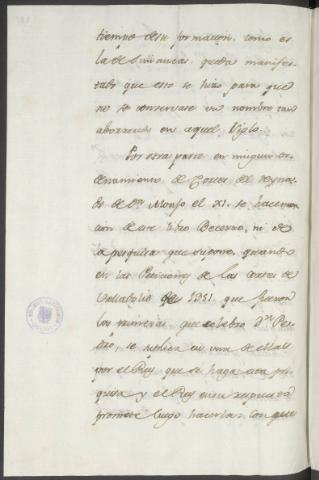 tiempo de su formacion, como es
la de Simancas, queda manifes-
tado que esto se hizo para que
no se conservase un nombre tan
aborrecido en aquel siglo.
Por otra parte en ningun or-
denamiento de Cortes del reyna-
do de Dn. Alonso el XI. se hace men-
cion de este Libro Becerro, ni de
la pesquisa que supone, quando
en las Peticiones de las Cortes de
Valladolid de 1351. que fueron
las primeras, que celebro Dn. Pe-
dro, se suplica en una de ellas
por el Rey, que se haga esta pes-
quisa y el Rey en su respuesta
promete luego hacerlas, con que